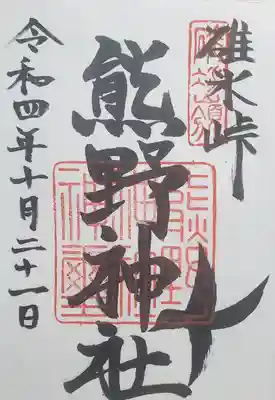 碓氷峠
熊野神社
令和四年十月二十一日